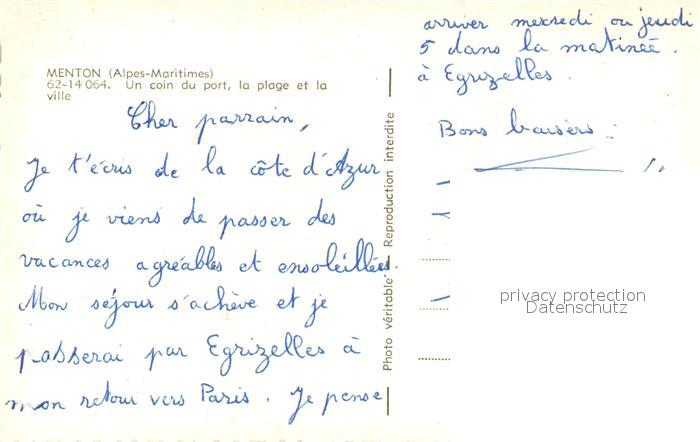 MENTON (Alpes-Maritimes)
62-14 064. Un coin du port, la plage et la
ville
Cher parrain,
Je t'écris de la côte d'Azur
où je viens de passer des
vacances agréables et ensoleillées.
Mon séjour s'achève et je
passerai par Egrizelles à
mon retour vers Paris. Je pense
arriver mercredi ou jeudi
5 dans la matinée.
à Egrizelles.
Bons baisers
Photo véritable Reproduction interdite
privacy protection
Datenschutz